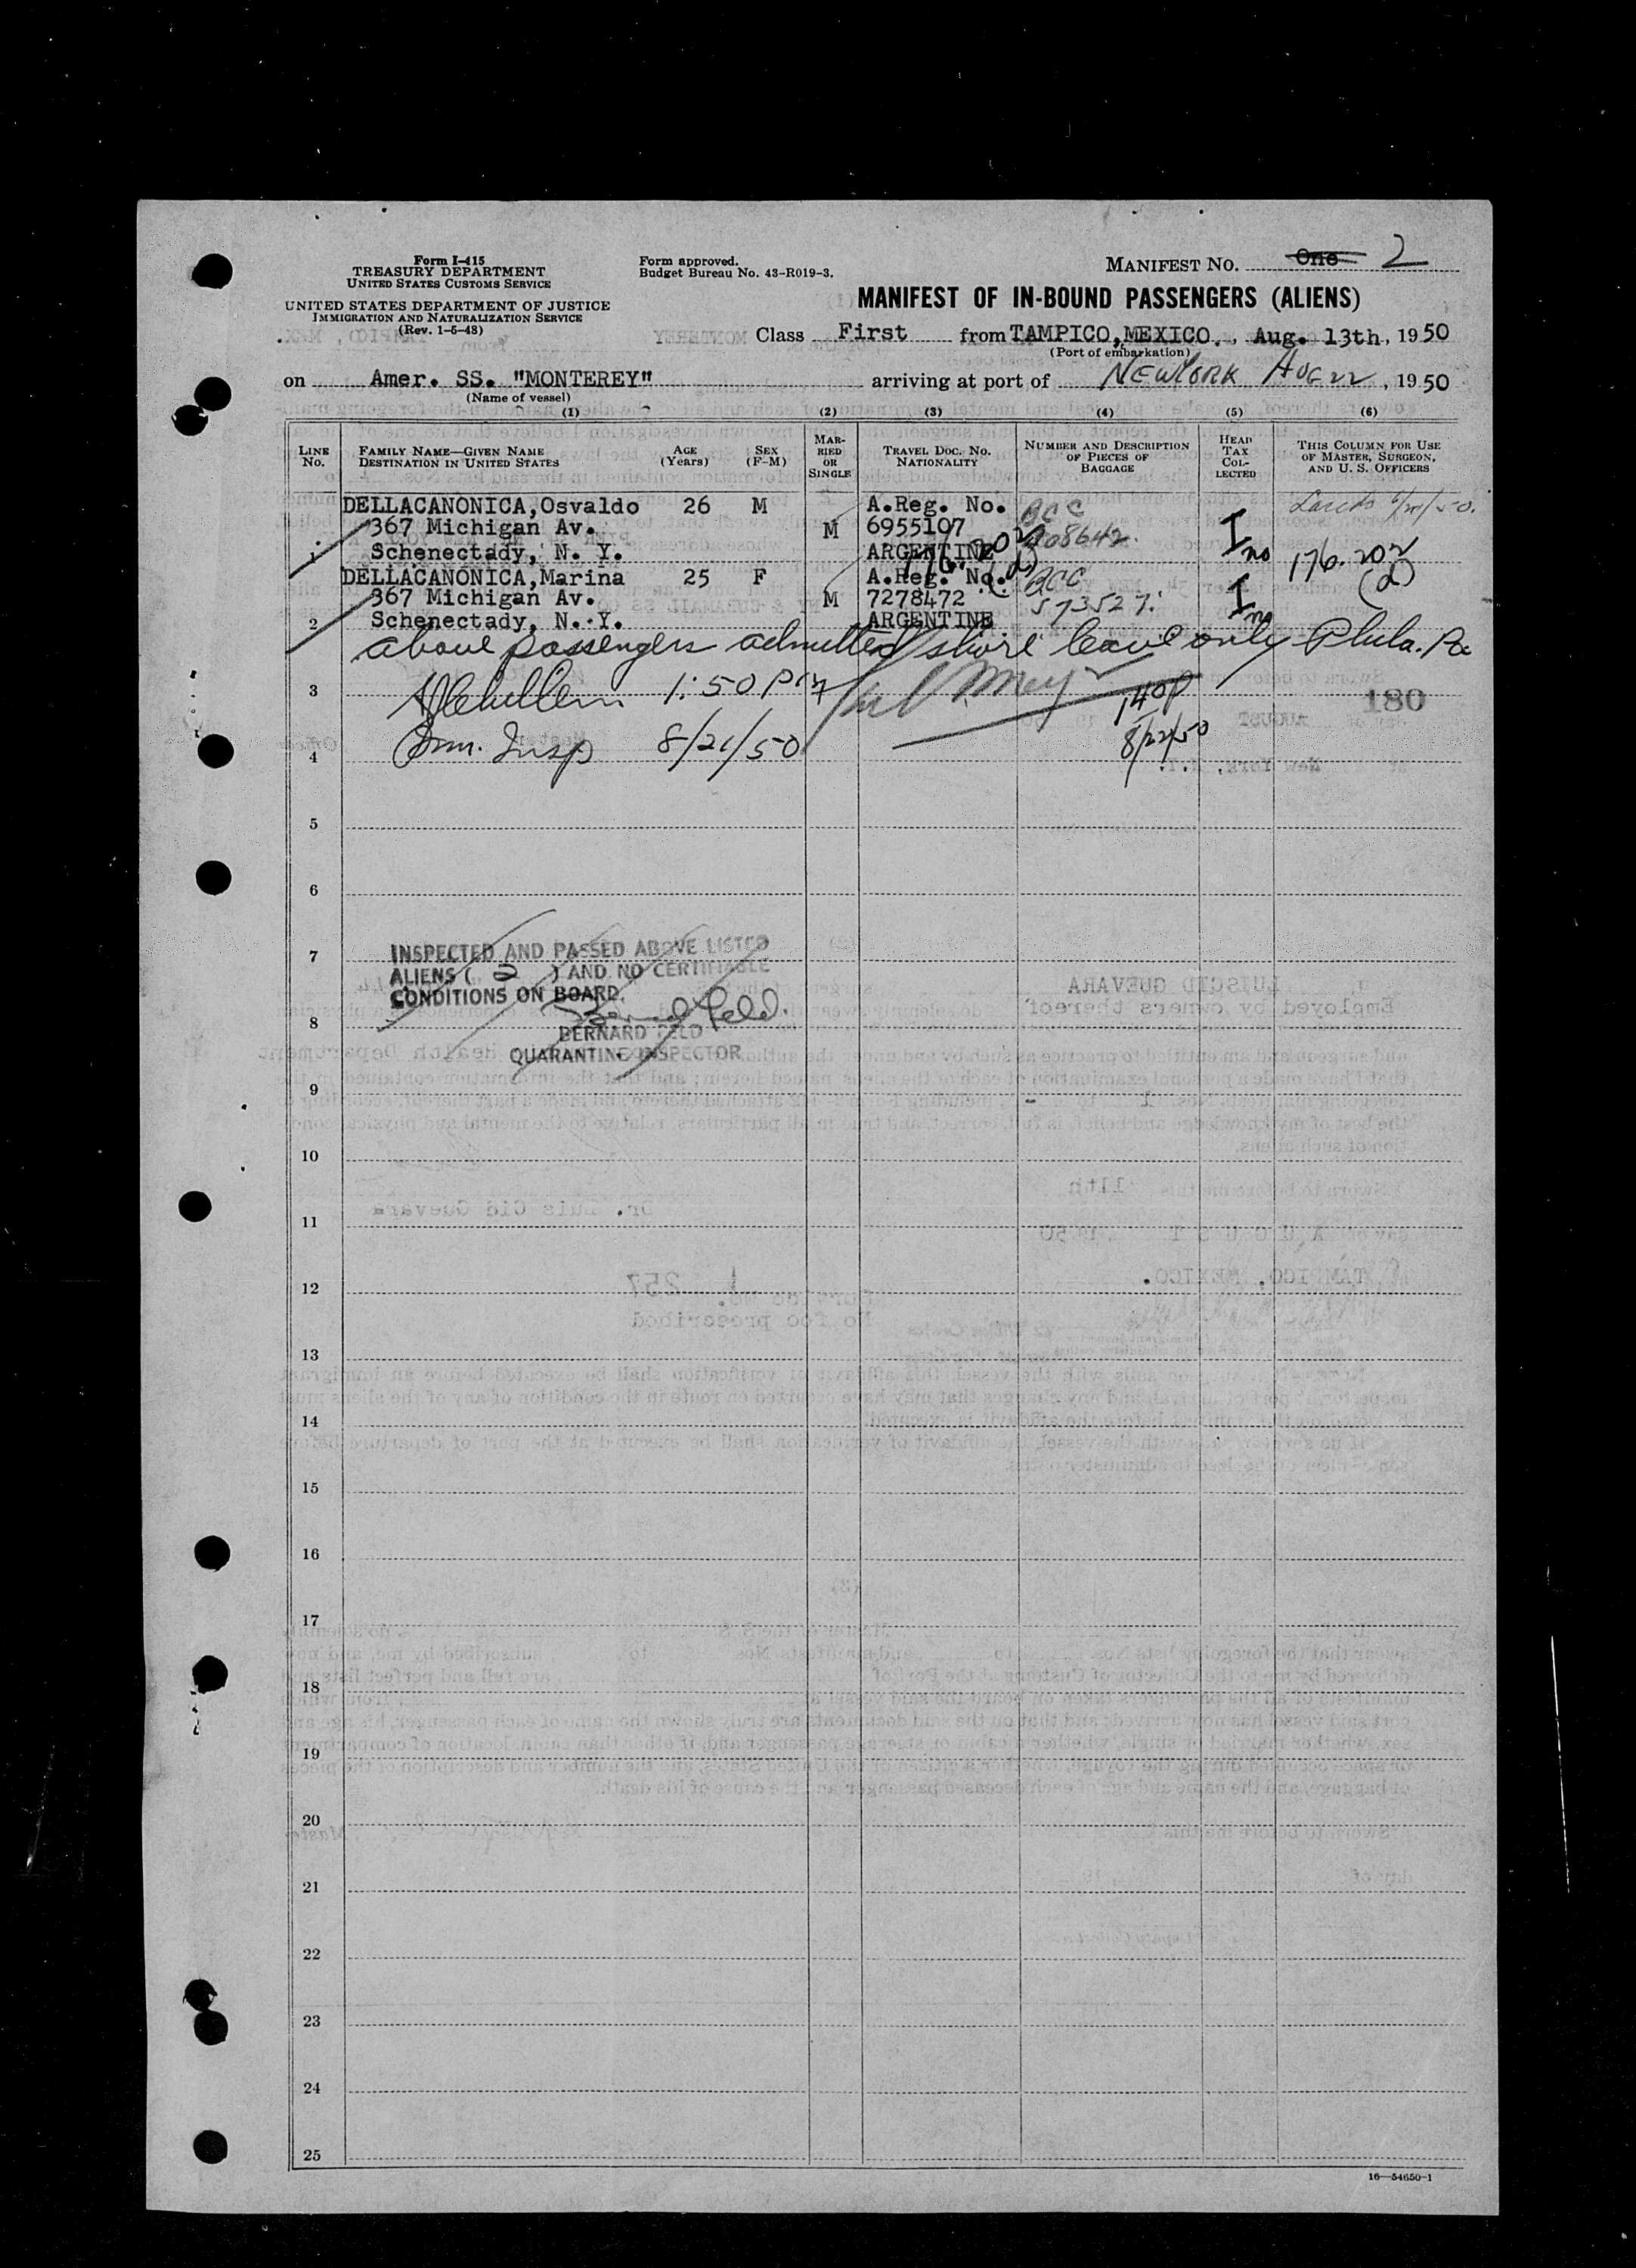 Form I-415
TREASURY DEPARTMENT
UNITED STATES CUSTOMS SERVICE
UNITED STATES DEPARTMENT OF JUSTICE
IMMIGRATION AND NATURALIZATION SERVICE
(Rev. 1-5-48)
Form approved.
Budget Bureau No. 43-R019-3.
MANIFEST NO. One 2
MANIFEST OF IN-BOUND PASSENGERS (ALIENS)
Class First from TAMPICO, MEXICO., Aug. 13th, 1950
(Port of embarkation)
on Amer. SS. "MONTEREY" arriving at port of NEW YORK AUG 22, 1950
(Name of vessel)
(1) (2) (3) (4) (5) (6)
LINE No.
FAMILY NAME—GIVEN NAME
DESTINATION IN UNITED STATES
AGE (Years)
SEX (F-M)
MARRIED OR SINGLE
TRAVEL DOC. NO.
NATIONALITY
NUMBER AND DESCRIPTION OF PIECES OF BAGGAGE
HEAD TAX COLLECTED
THIS COLUMN FOR USE OF MASTER, SURGEON, AND U. S. OFFICERS
DELLACANONICA, Osvaldo 26 M A.Reg. No.
367 Michigan Av. M 6955107
1 Schenectady, N. Y. ARGENTINE 176.202 (d)
DELLACANONICA, Marina 25 F A.Reg. No.
367 Michigan Av. M 7278472 573527
2 Schenectady, N. Y. ARGENTINE
above passengers admitted shore leave only Phila. Pa
3 1:50 PM 140P 180
4 Imm. Insp 8/21/50 8/22/50
5
6
7
INSPECTED AND PASSED ABOVE LISTED
ALIENS ( 2 ) AND NO CERTIFIABLE
CONDITIONS ON BOARD.
8
BERNARD FELD
QUARANTINE INSPECTOR
9
10
11
12
13
14
15
16
17
18
19
20
21
22
23
24
25
16—54650-1